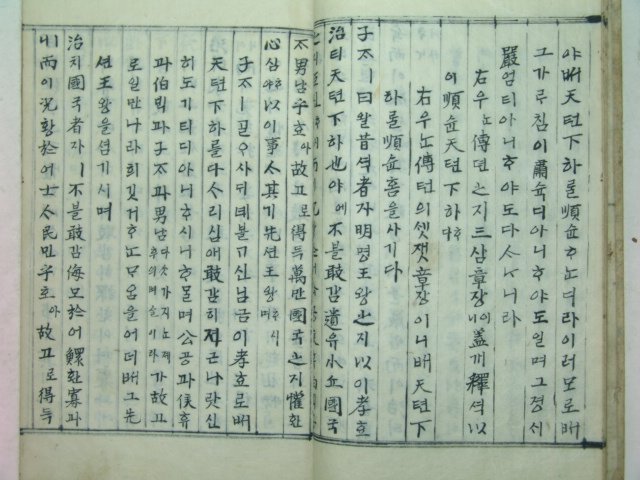 야배天텬下하를順슌ᄒᆞᄂᆞ녀라이러모로배
그가루침이肅슉디아니ᄒᆞ야도일며그졍시
嚴엄티아니ᄒᆞ야도다ᄉᆞ니라
右우ᄂᆞ傳뎐之지三삼章장이蓋개釋셕以
이順슌天텬下하
右우ᄂᆞ傳뎐의셋잿章장이니배天텬下
하를順슌홈을사기다
子ᄌᆞㅣ曰왈昔셕者쟈明명王왕之지以이孝효
治티天텬下하也야에不블敢감遺유小쇼國국
不男남乎호아故고로得득萬만國국之지懽환
心심ᄒᆞ야以이事ᄉᆞ其기先션王왕ᄒᆞ시며
子ᄌᆞㅣ골ᄋᆞ사ᄃᆡ녜ᄇᆞᆯ기신님금이孝효로배
天텬下하를다ᄉᆞ리심애敢감히져근나랏신
하도기티디아니ᄒᆞ시니ᄒᆞ믈며公공과侯후
과伯ᄇᆡᆨ과子ᄌᆞ과男남가故고
로일만나라희깃거ᄒᆞᄂᆞᄆᆞ움을어더배그先
션王왕을셤기시며
治치國국者쟈ㅣ不블敢감侮모於어鰥환寡과
ㅣ而이況황於어士ᄉᆞ民민乎호아故고로得득